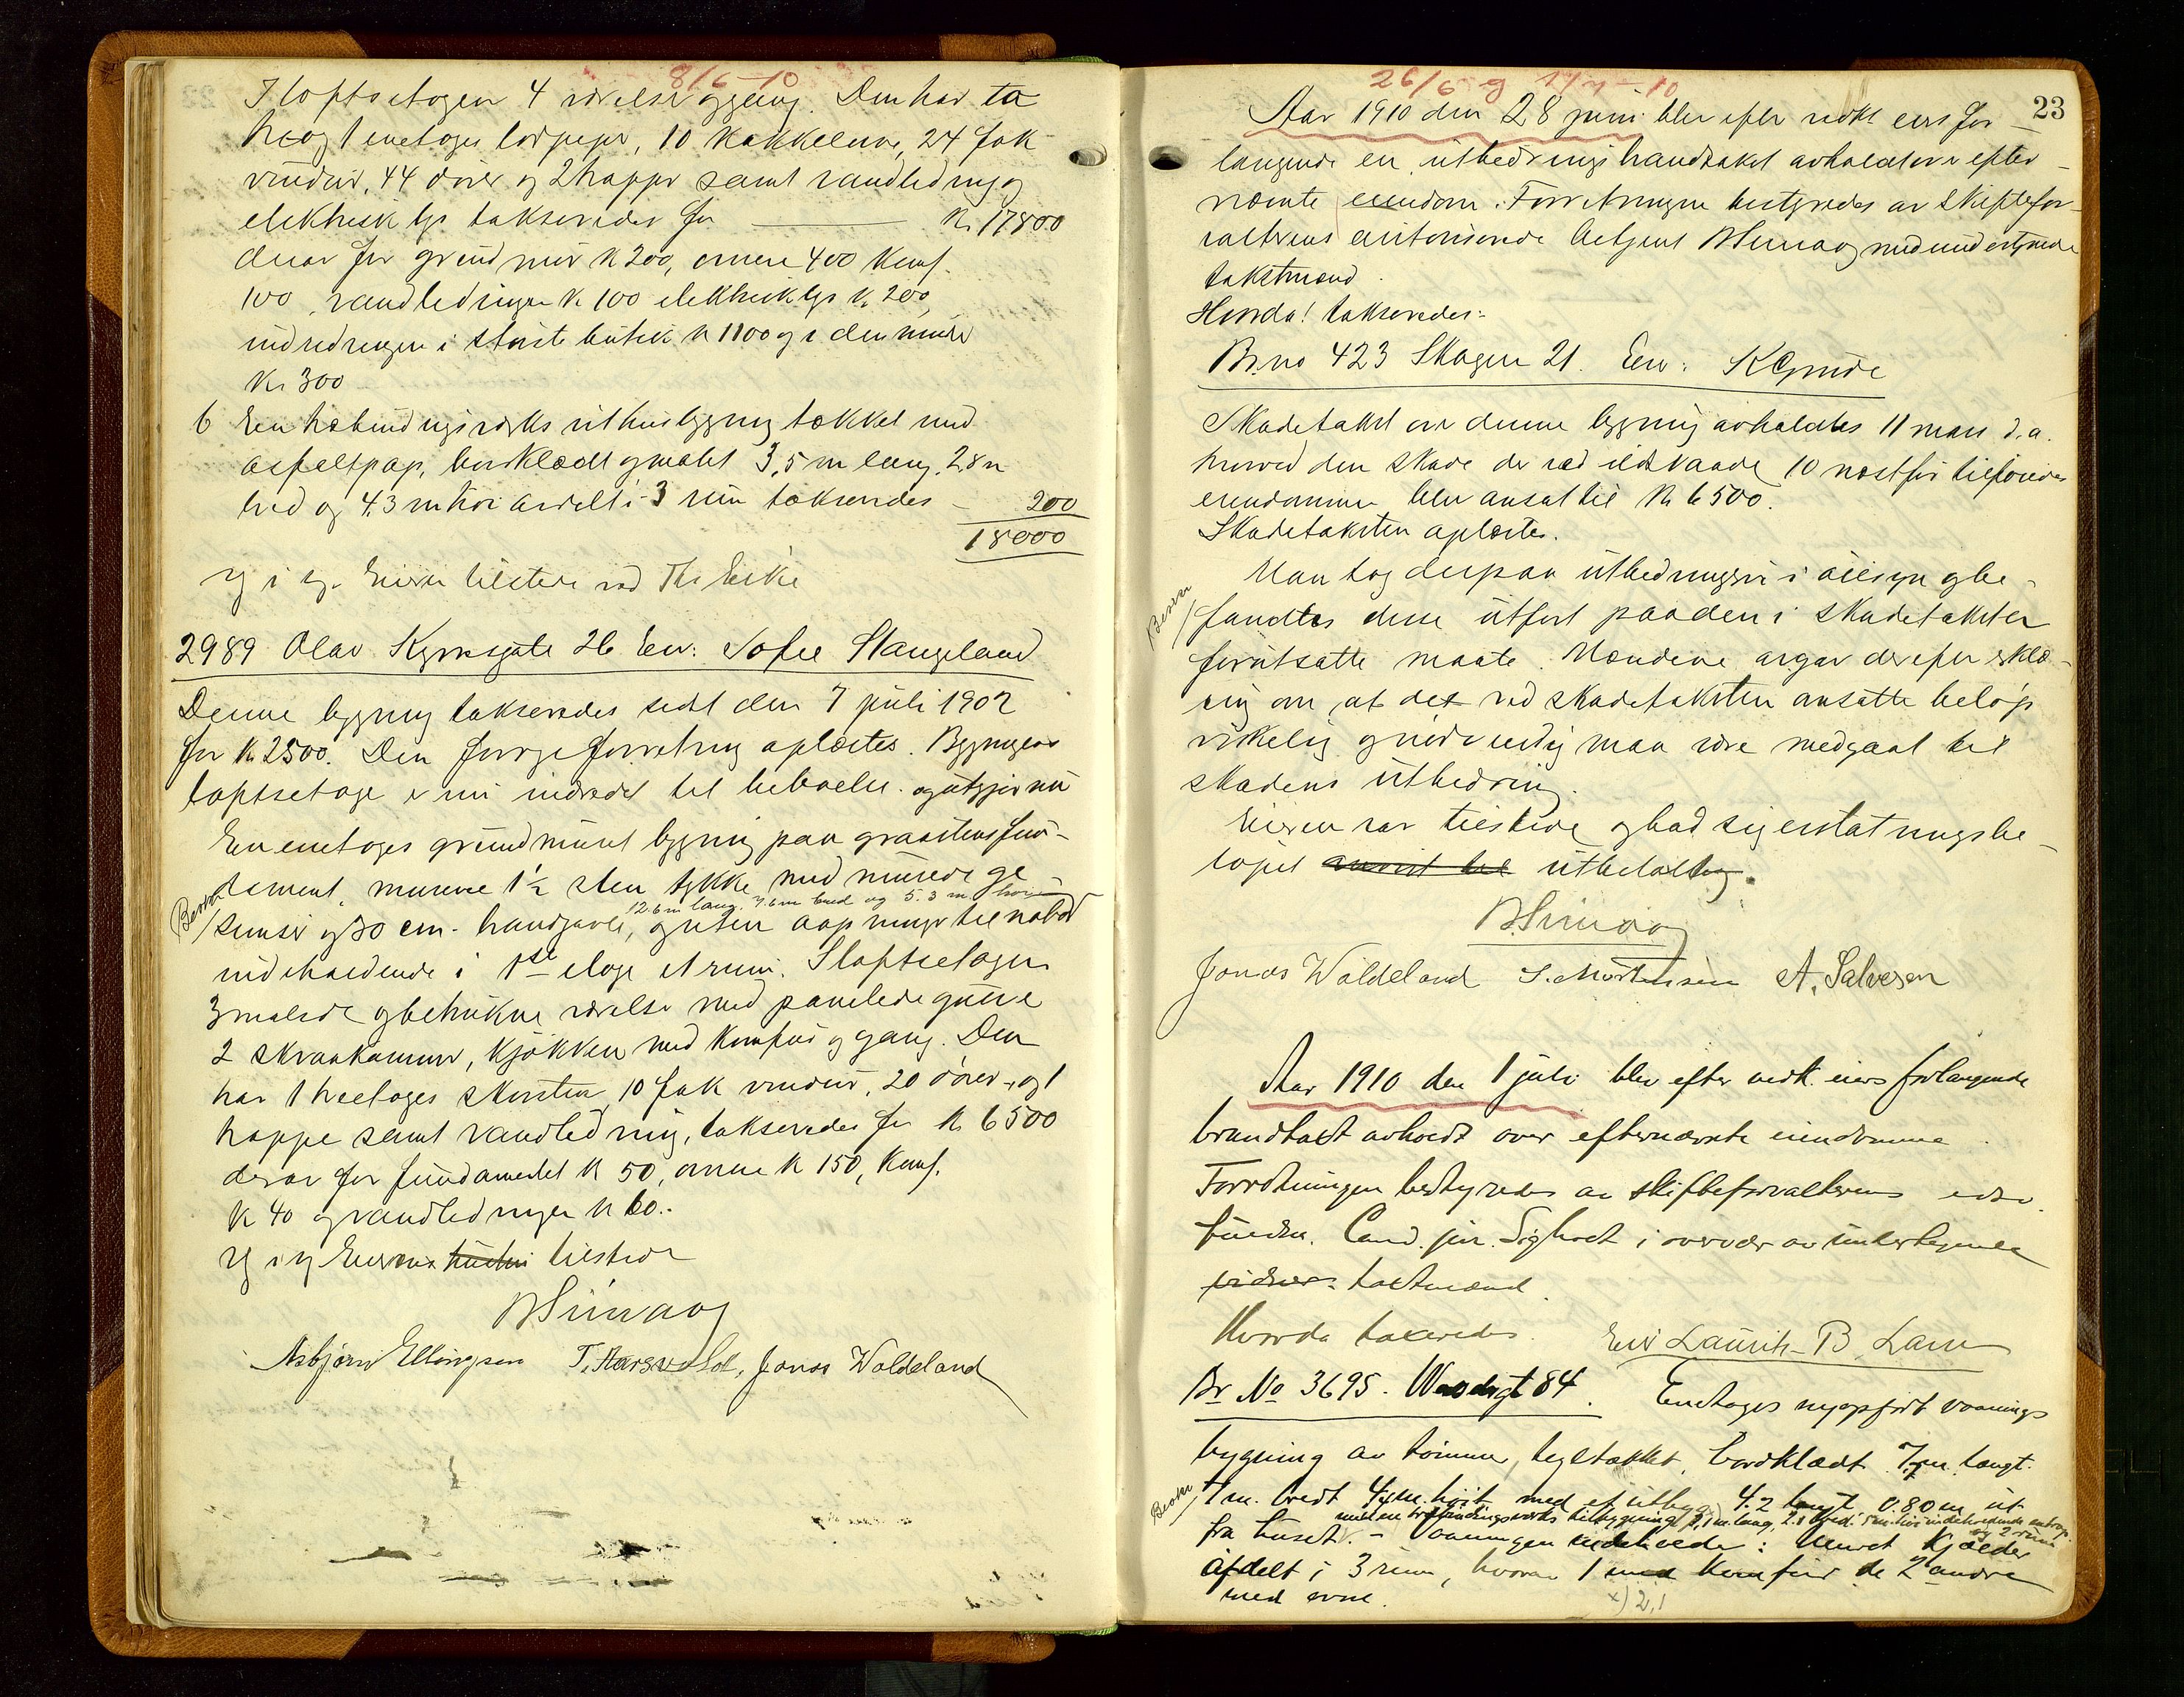 8/6-10
I loftsetagen 4 værelser og gang. Den har to
he og 1 enetages lodpiper, 10 kakkelovne, 24 fak
vinduer, 44 dører og 2 trapper samt vandledning og
elektrisk lys takseredes for Kr 17800
derav for grundmur kr 200, ovnene 400 komf.
100, vandledningen kr 100 elektrisk lys kr 200,
indredningen i største butik kr 1100 og i den mindre
Kr 300
b En utmurt uthusbygning tækket med
asfaltpap, bordklædt og malet 3,5 m lang, 2,8 m
bred og 4.3 m høi avdelt i 3 rum takseredes - 200
18000
Eieren tilstede ved
2989 Olav Kyrresgate 26 Eier: Sofie Stangeland
Denne bygning takseredes sidst den 7 juli 1902
for kr 2500. Den forrige forretning oplæstes. Bygningens
loftsetage er nu indredet til beboelse og utgjør nu
En enetages grundmuret bygning paa graastensfun-
dament, murene 1½ sten tykke med murede ge
12.6 m lang, 7.6 m bred og 5.3 m høi
simser og 30 cm. brandgavle, og uten aapninger til nabo
indeholdende i 1ste etage et rum. I loftsetagen
3 malede og betrukne værelser med panelede gulve
2 skraakammer, kjøkken med komfur og gang. Den
har 1 toetages skorsten, 10 fak vinduer, 20 dører og 1
trappe samt vandledning, takseredes for kr 6500
derav for fundamentet kr 50, ovnene kr 150, komf.
kr 40 og vandledningen kr 60.
Eieren tilstede
Asbjørn Ellingsen T. Aarsvold, Jonas Waldeland
26/6 og 1/7-10
23
Aar 1910 den 28 juni blev efter vedk. eiers for-
langende en utbedringsbrandtakst avholdt over efter-
nævnte eiendom. Forretningen bestyredes av skiftefor-
valterens autoriserede betjent med undertegnede
takstmænd.
Hvorda! takseredes:
Br. no 423 Skagen 21. Eier:
Skadetakst over denne bygning avholdtes 11 mars d.a.
hvorved den skade der ved ildsvaade 10 næstfør tilføiedes
eiendommen blev ansat til Kr 6500.
Skadetaksten oplæstes.
Man tog derpaa utbedringen i øiesyn og be-
fandtes disse utført paa den i skadetaksten
forutsatte maate. Mændene avgav derefter erklæ-
ring om, at det ved skadetaksten ansatte beløp
virkelig og nødvendig maa være medgaat til
skadens utbedring.
Eieren var tilstede og bad sig erstatningsbe-
løpet utbetalt.
Jonas Waldeland S. Mortensen A. Salvesen
Aar 1910 den 1 juli blev efter vedk. eiers forlangende
brandtakst avholdt over efternævnte eiendomme.
Forretningen bestyredes av skifteforvalterens edsv.
fuldm. Cand. jur. Sigholt i overvær av undertegnede
vidner takstmænd.
Hvorda taxeredes. Eier Laurits B. Larsen
Br No 3695. 84. Enetages nyopført vaanings
bygning av tømmer, tegltækket, bordklædt 7 m. langt
7 m. bredt 4 m. høit med et utbyg 4.2 langt 0.80 m ut
fra huset. - Vaaningen indeholder: Muret Kjælder
afdelt i 3 rum, hvorav 1 med komfur de 2 andre
med ovne.
x) 2,1